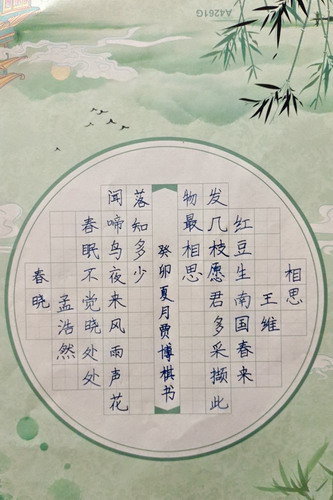 A4261G
相思
王维
红豆生南国春来
发几枝愿君多采撷此
物最相思
春晓
孟浩然
春眠不觉晓处处
闻啼鸟夜来风雨声花
落知多少
癸卯夏月贾博棋书